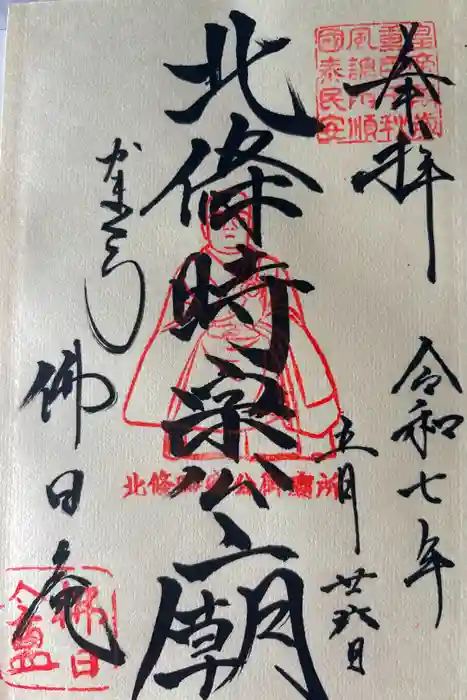 奉拝
令和七年
五月廿六日
風調雨順
國泰民安
北條時宗公廟
北條時宗公御廟所
かまくら
佛日庵
佛日
盦